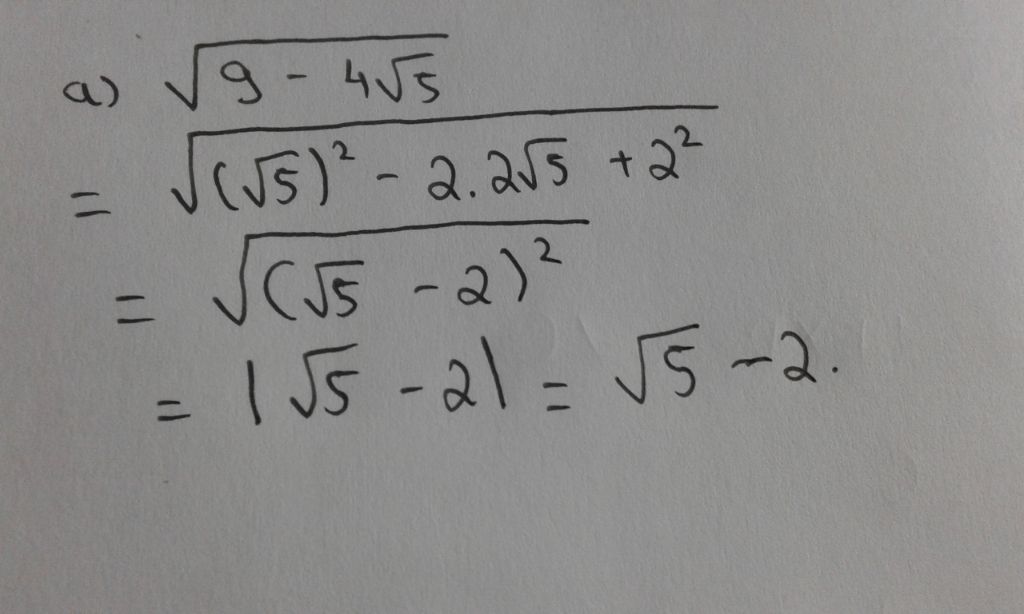 a) √(9 - 4√5)
= √((√5)² - 2.2√5 + 2²)
= √((√5 - 2)²)
= |√5 - 2| = √5 - 2.